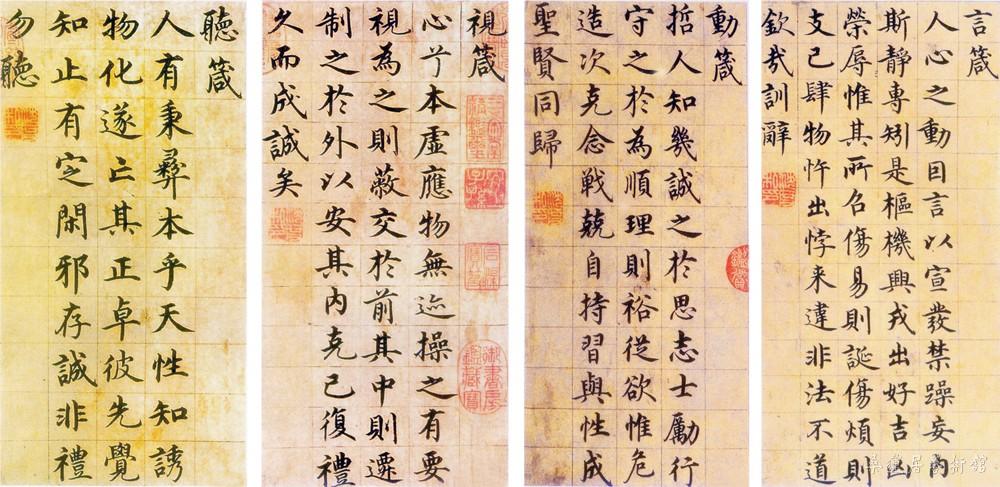 言箴
人心之動因言以宣發禁躁妄內
斯靜專矧是樞機興戎出好吉凶
榮辱惟其所召傷易則誕傷煩則
支己肆物忤出悖来違非法不道
欽哉訓辭
動箴
哲人知幾誠之於思志士勵行
守之於為順理則裕從欲惟危
造次克念戰兢自持習與性成
聖賢同歸
視箴
心兮本虛應物無迹操之有要
視為之則蔽交於前其中則遷
制之於外以安其內克己復禮
久而成誠矣
聽箴
人有秉彝本乎天性知誘
物化遂亡其正卓彼先覺
知止有定閑邪存誠非禮
勿聽